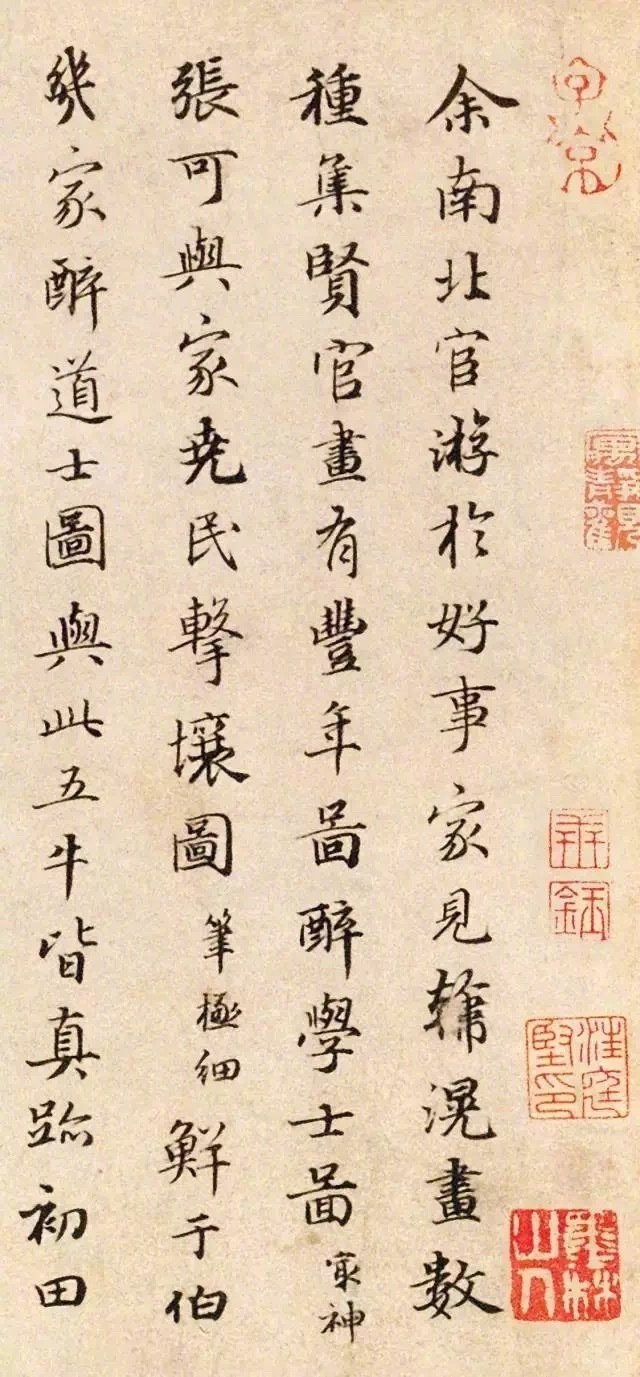 余南北官游於好事家見韓滉畫數
種集賢官畫有豐年啚醉學士啚㝡神
張可與家尭民擊壤圖筆極細鮮于伯
幾家醉道士圖與此五牛皆真跡初田